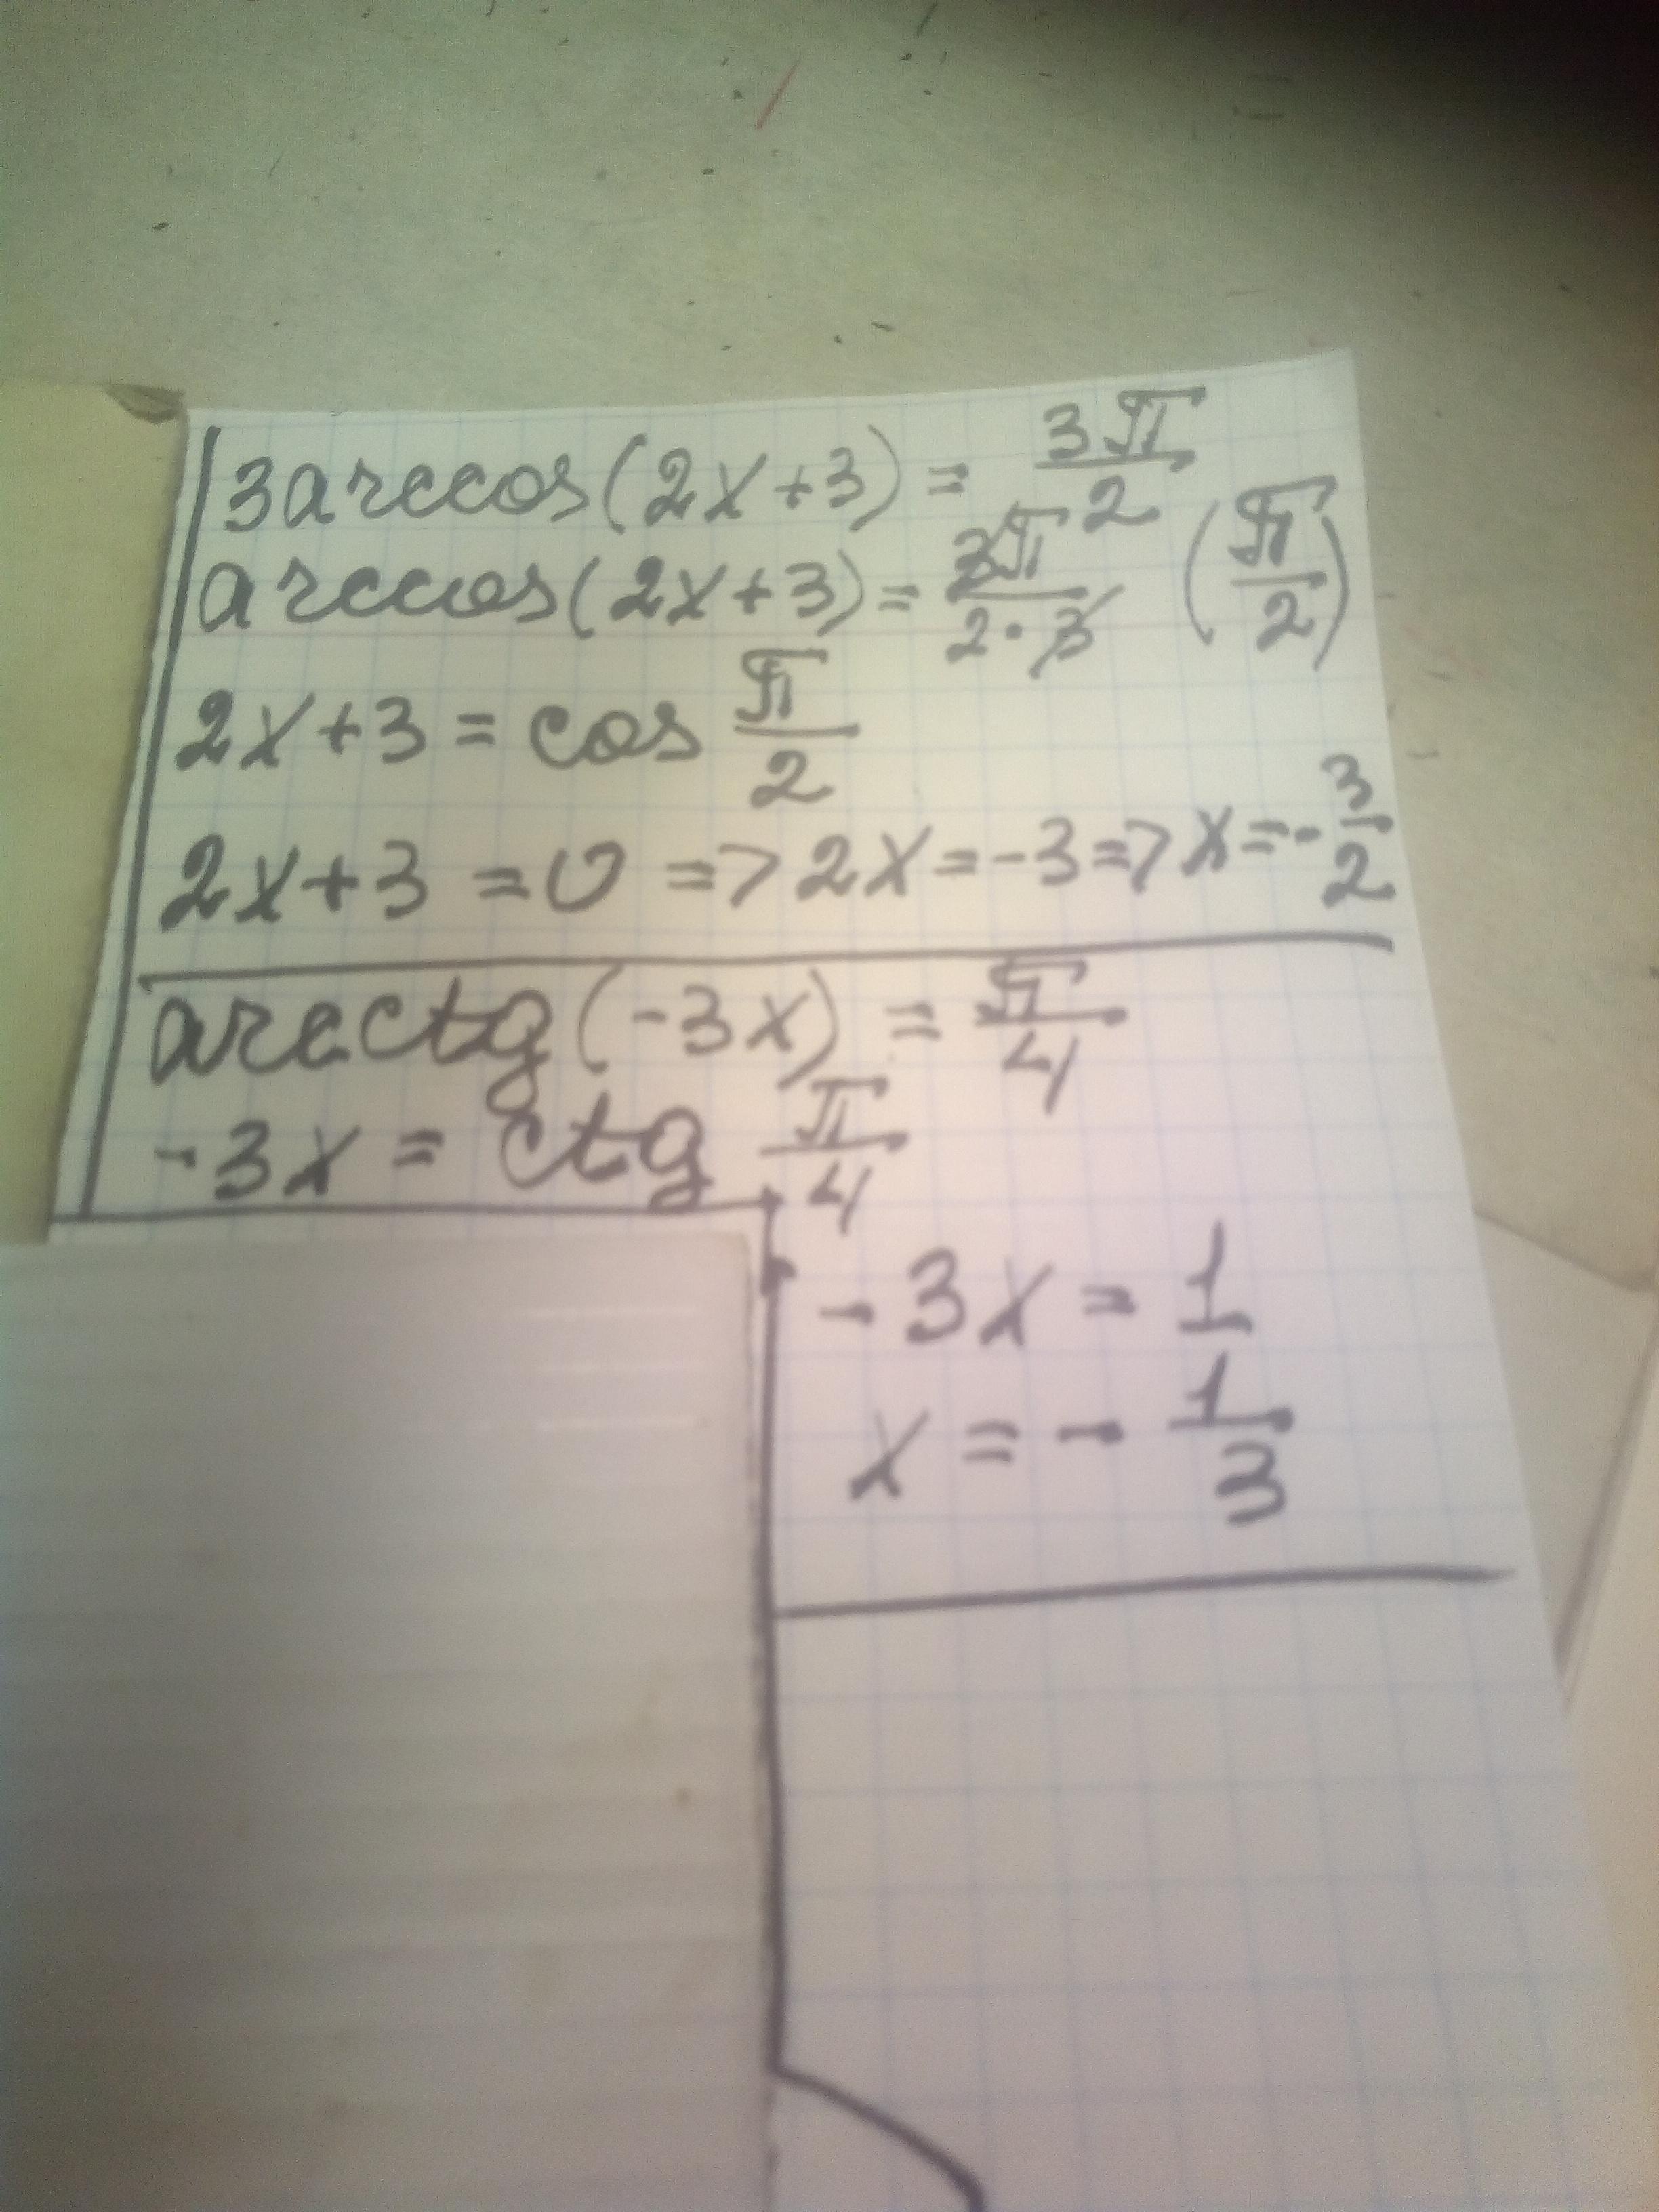 3arccos(2x+3) = 3π/2
arccos(2x+3) = 3π/2·3 (π/2)
2x+3 = cos π/2
2x+3 = 0 => 2x = -3 => x = -3/2
arcctg(-3x) = π/4
-3x = ctg π/4
-3x = 1
x = -1/3